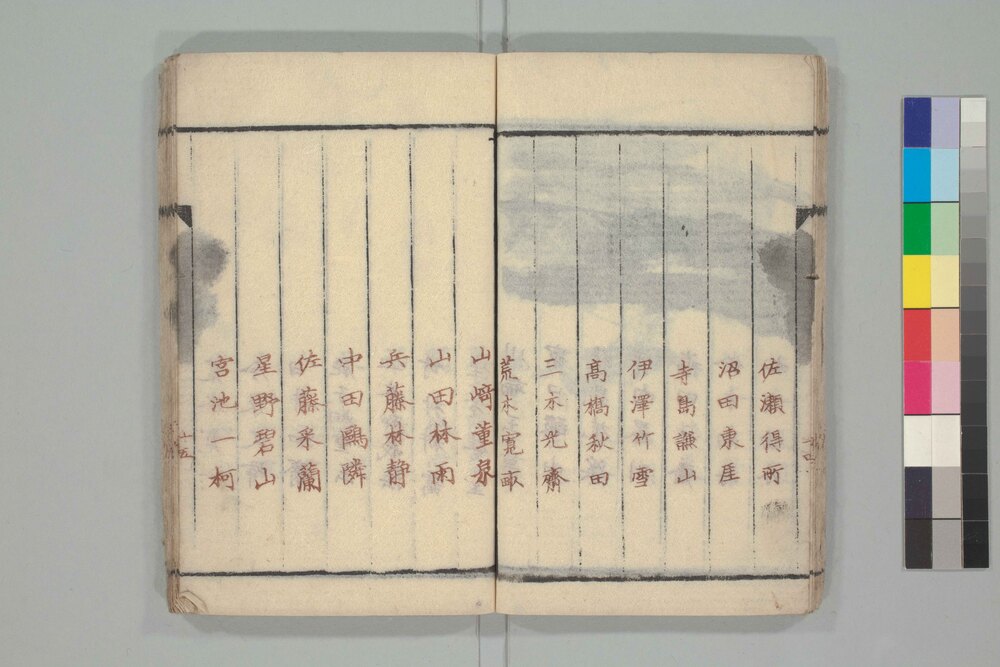 佐瀬得所
沼田東厓
寺島謙山
伊澤竹雪
髙橋秋田
三木光齋
荒木寛畝
山﨑董泉
山田林雨
兵藤林静
中田鷗隣
佐藤采蘭
星野碧山
宮池一柯
十五